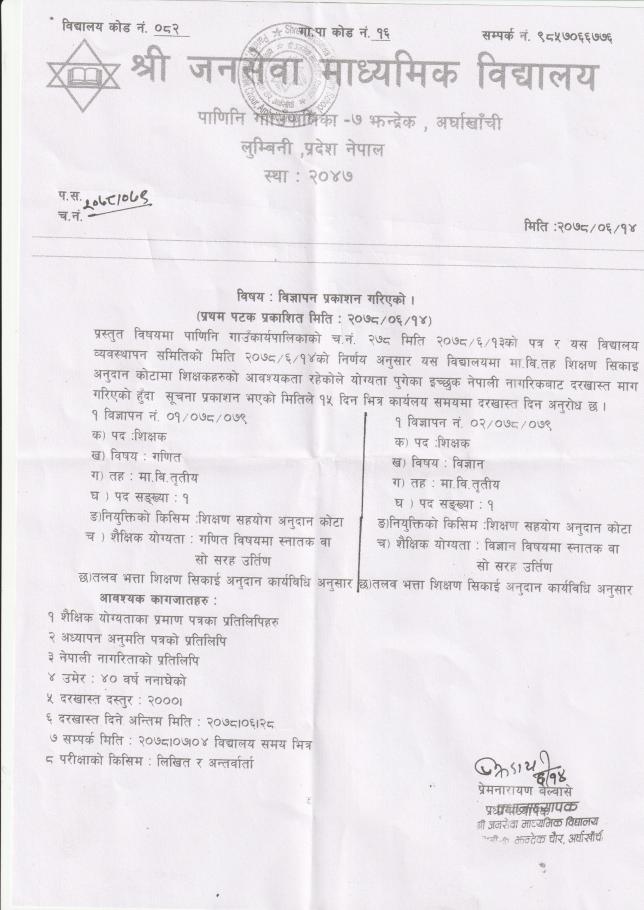 विद्यालय कोड नं. ०८२
गा.पा कोड नं. १६
सम्पर्क नं. ९८५७०६६७७६
श्री जनसेवा माध्यमिक विद्यालय
पाणिनि गाउँपालिका -७ झन्द्रेक , अर्घाखाँची
लुम्बिनी ,प्रदेश नेपाल
स्था : २०४७
प.स. २०७८।०७९
च.नं.
मिति :२०७८/०६/१४
विषय : विज्ञापन प्रकाशन गरिएको ।
(प्रथम पटक प्रकाशित मिति : २०७८/०६/१४)
प्रस्तुत विषयमा पाणिनि गाउँकार्यपालिकाको च.नं. २७८ मिति २०७८/६/१३को पत्र र यस विद्यालय
व्यवस्थापन समितिको मिति २०७८/६/१४को निर्णय अनुसार यस विद्यालयमा मा.वि.तह शिक्षण सिकाइ
अनुदान कोटामा शिक्षकहरुको आवश्यकता रहेकोले योग्यता पुगेका इच्छुक नेपाली नागरिकवाट दरखास्त माग
गरिएको हुँदा सूचना प्रकाशन भएको मितिले १५ दिन भित्र कार्यालय समयमा दरखास्त दिन अनुरोध छ ।
१ विज्ञापन नं. ०१/०७८/०७९
क) पद :शिक्षक
ख) विषय : गणित
ग) तह : मा.वि.तृतीय
घ ) पद सङ्ख्या : १
ङ)नियुक्तिको किसिम :शिक्षण सहयोग अनुदान कोटा
च ) शैक्षिक योग्यता : गणित विषयमा स्नातक वा
सो सरह उर्तिण
छ)तलव भत्ता शिक्षण सिकाई अनुदान कार्यविधि अनुसार
१ विज्ञापन नं. ०२/०७८/०७९
क) पद :शिक्षक
ख) विषय : विज्ञान
ग) तह : मा.वि.तृतीय
घ ) पद सङ्ख्या : १
ङ)नियुक्तिको किसिम :शिक्षण सहयोग अनुदान कोटा
च) शैक्षिक योग्यता : विज्ञान विषयमा स्नातक वा
सो सरह उर्तिण
छ)तलव भत्ता शिक्षण सिकाई अनुदान कार्यविधि अनुसार
आवश्यक कागजातहरु :
१ शैक्षिक योग्यताका प्रमाण पत्रका प्रतिलिपिहरु
२ अध्यापन अनुमति पत्रको प्रतिलिपि
३ नेपाली नागरिताको प्रतिलिपि
४ उमेर : ४० वर्ष ननाघेको
५ दरखास्त दस्तुर : २०००।
६ दरखास्त दिने अन्तिम मिति : २०७८।०६।२८
७ सम्पर्क मिति : २०७८।०७।०४ विद्यालय समय भित्र
८ परीक्षाको किसिम : लिखित र अन्तर्वार्ता
६/१४
प्रेमनारायण बेल्वासे
प्रधानाध्यापक
श्री जनसेवा माध्यमिक विद्यालय
झन्द्रेक चौर, अर्घाखाँची